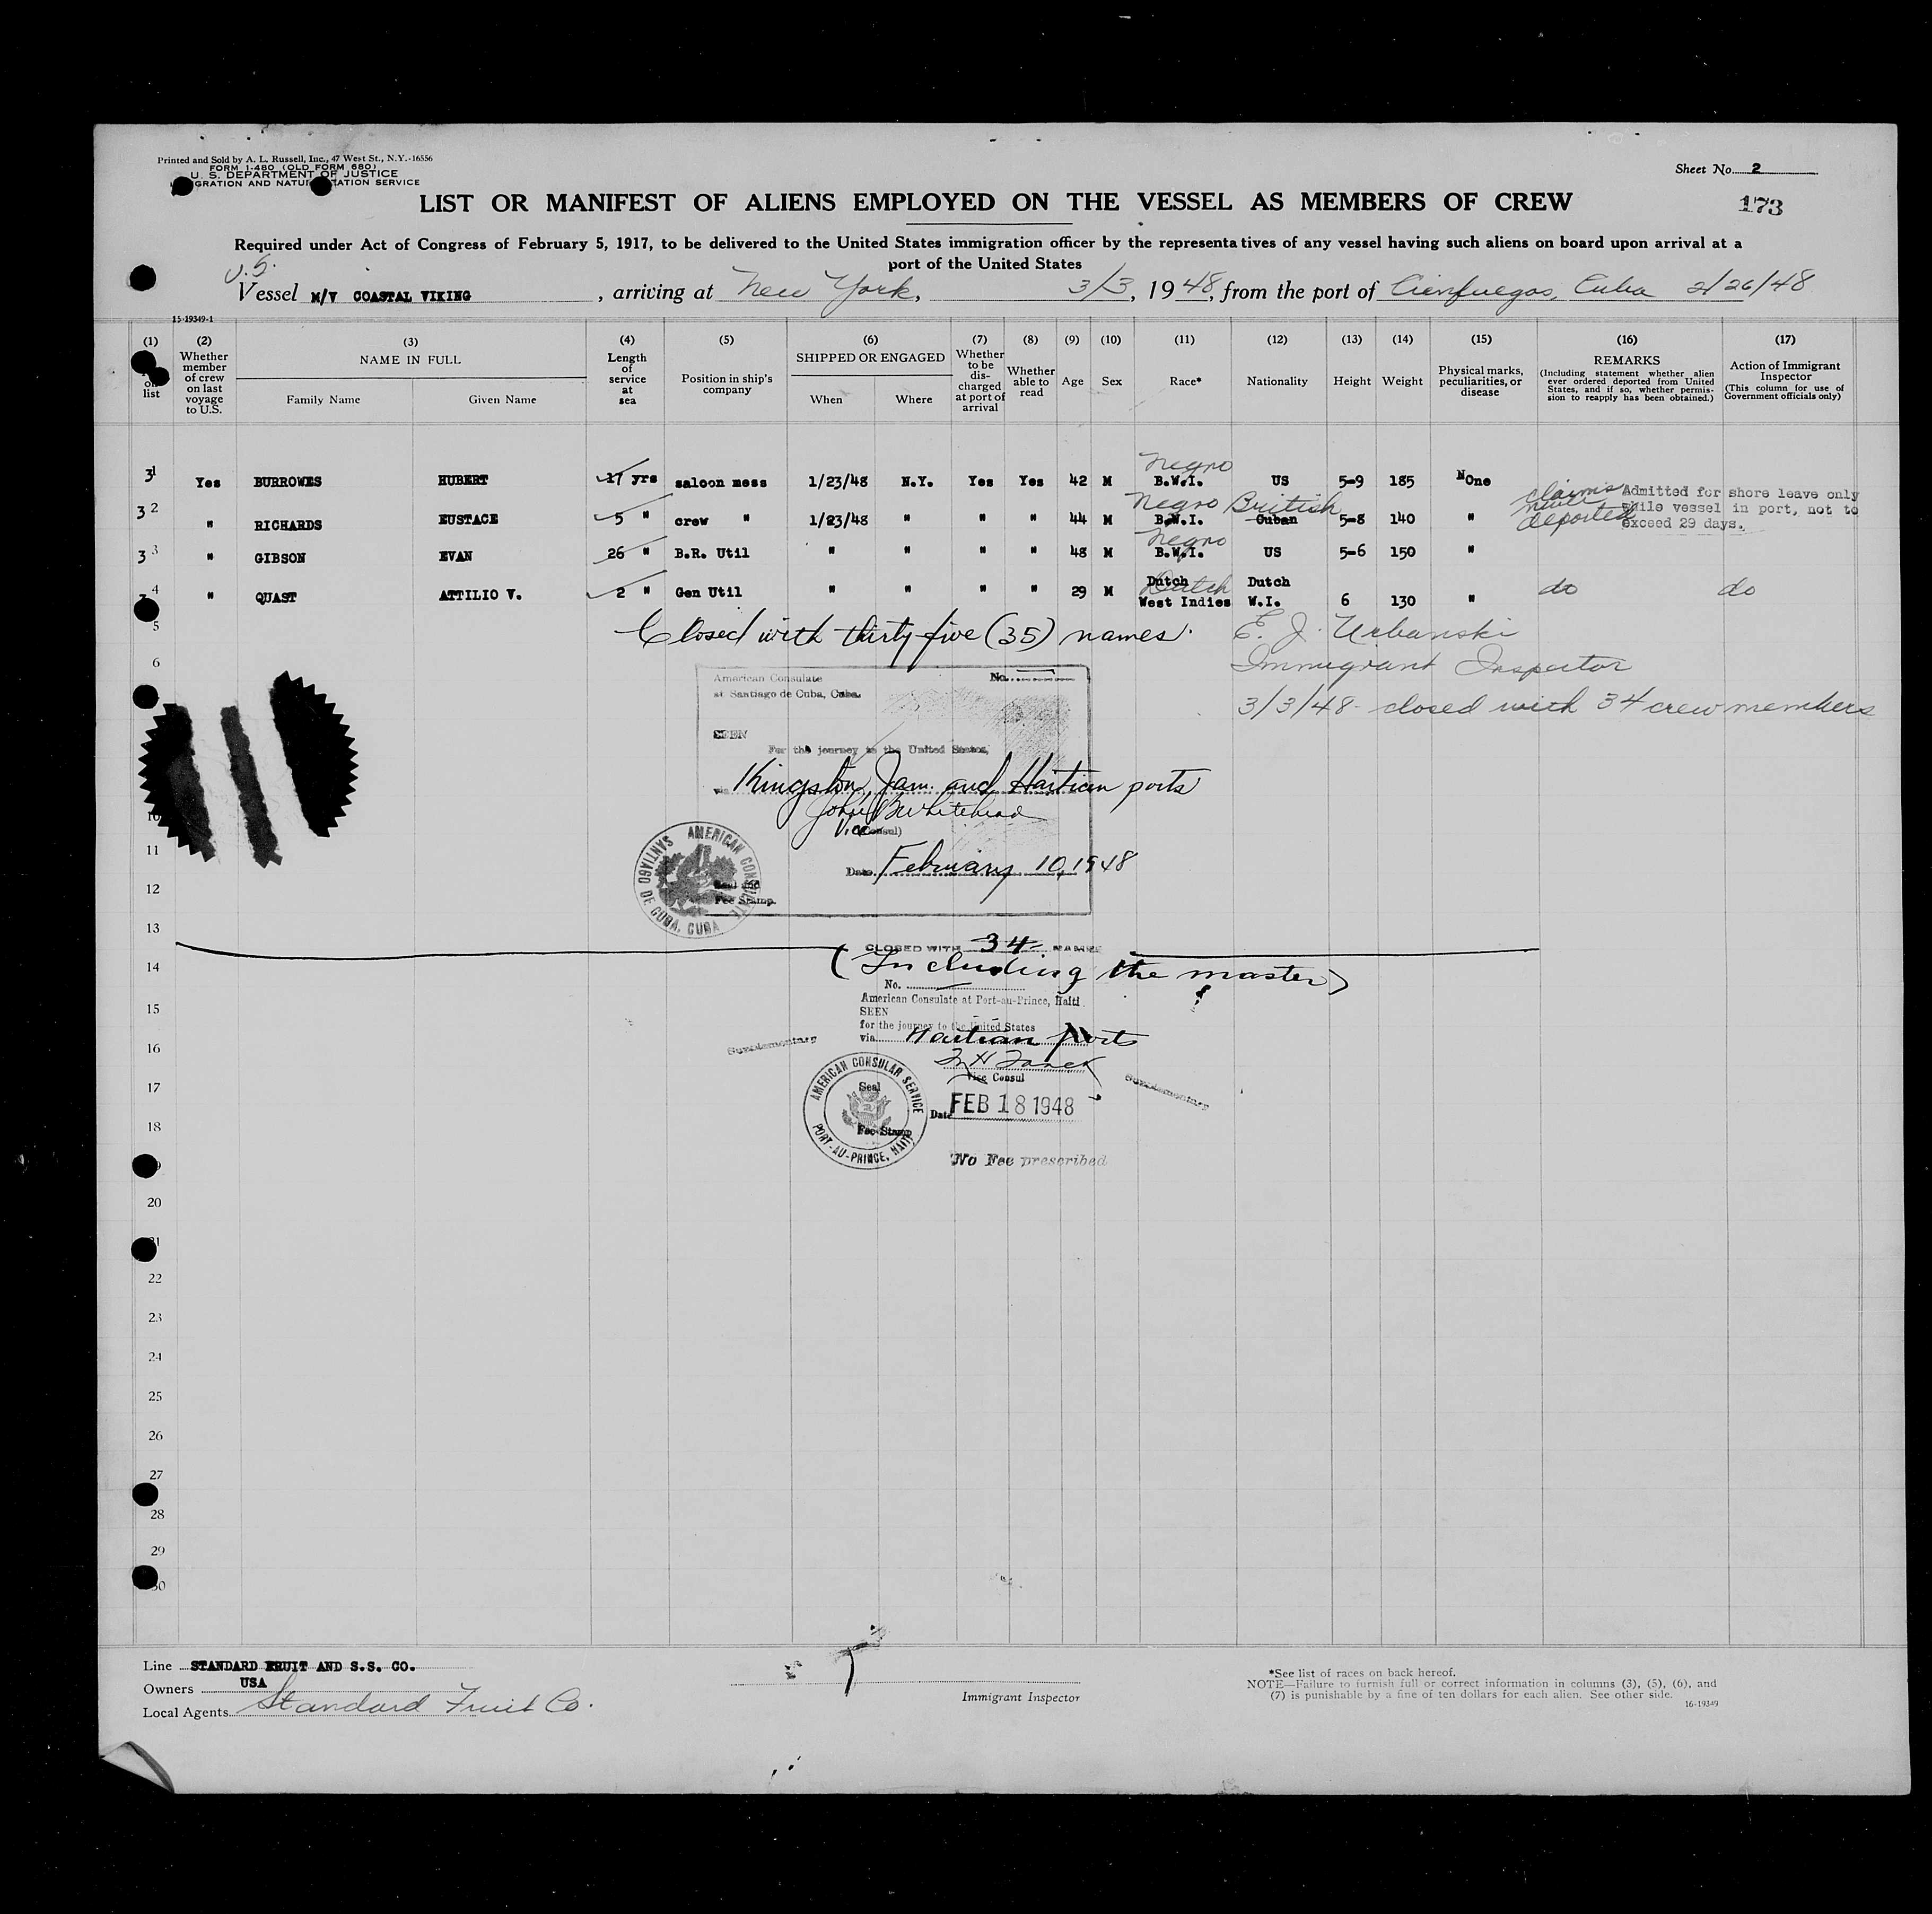 Printed and Sold by A. L. Russell, Inc., 47 West St., N.Y.-16556
FORM I-480 (OLD FORM 680)
U. S. DEPARTMENT OF JUSTICE
GRATION AND NATUR ATION SERVICE
Sheet No. 2
173
LIST OR MANIFEST OF ALIENS EMPLOYED ON THE VESSEL AS MEMBERS OF CREW
Required under Act of Congress of February 5, 1917, to be delivered to the United States immigration officer by the representatives of any vessel having such aliens on board upon arrival at a
port of the United States
U.S.
Vessel M/V COASTAL VIKING, arriving at New York, 3/3, 1948, from the port of Cienfuegos, Cuba 2/26/48
15-19349-1
(1) on list
(2) Whether member of crew on last voyage to U.S.
(3) NAME IN FULL
Family Name Given Name
(4) Length of service at sea
(5) Position in ship's company
(6) SHIPPED OR ENGAGED
When Where
(7) Whether to be discharged at port of arrival
(8) Whether able to read
(9) Age
(10) Sex
(11) Race*
(12) Nationality
(13) Height
(14) Weight
(15) Physical marks, peculiarities, or disease
(16) REMARKS (Including statement whether alien ever ordered deported from United States, and if so, whether permission to reapply has been obtained.)
(17) Action of Immigrant Inspector (This column for use of Government officials only)
31 Yes BURROWES HUBERT 17 yrs saloon mess 1/23/48 N.Y. Yes Yes 42 M Negro B.W.I. US 5-9 185 None
32 " RICHARDS EUSTACE 5 " crew " 1/23/48 " " " 44 M Negro B.W.I. British Cuban 5-8 140 " claims never deported Admitted for shore leave only while vessel in port, not to exceed 29 days.
33 " GIBSON EVAN 26 " B.R. Util " " " " 48 M Negro B.W.I. US 5-6 150 "
4 " QUAST ATTILIO V. 2 " Gen Util " " " " 29 M Dutch Dutch West Indies Dutch W.I. 6 130 " do do
5 Closed with thirty five (35) names. E. J. Urbanski
6 Immigrant Inspector
3/3/48 closed with 34 crewmembers
American Consulate No.
at Santiago de Cuba, Cuba.
SEEN
For the journey to the United States,
via Kingston, Jam. and Haitian ports
John B Whitehead
Vice (Consul)
Date February 10, 1948
Seal and
Fee Stamp.
AMERICAN CONSULATE SANTIAGO DE CUBA, CUBA
10
11
12
13
CLOSED WITH 34 NAMES
(Including the master)
14
No.
American Consulate at Port-au-Prince, Haiti
15
SEEN
for the journey to the United States
via Haitian ports
16
Supplementary
Vice Consul
Supplementary
17
AMERICAN CONSULAR SERVICE PORT-AU-PRINCE, HAITI
Seal
Fee Stamp
Date FEB 18 1948
18
No Fee prescribed
20
22
23
24
25
26
27
28
29
30
Line STANDARD FRUIT AND S.S. CO.
Owners USA
Local Agents Standard Fruit Co.
Immigrant Inspector
*See list of races on back hereof.
NOTE—Failure to furnish full or correct information in columns (3), (5), (6), and
(7) is punishable by a fine of ten dollars for each alien. See other side.
16-19349